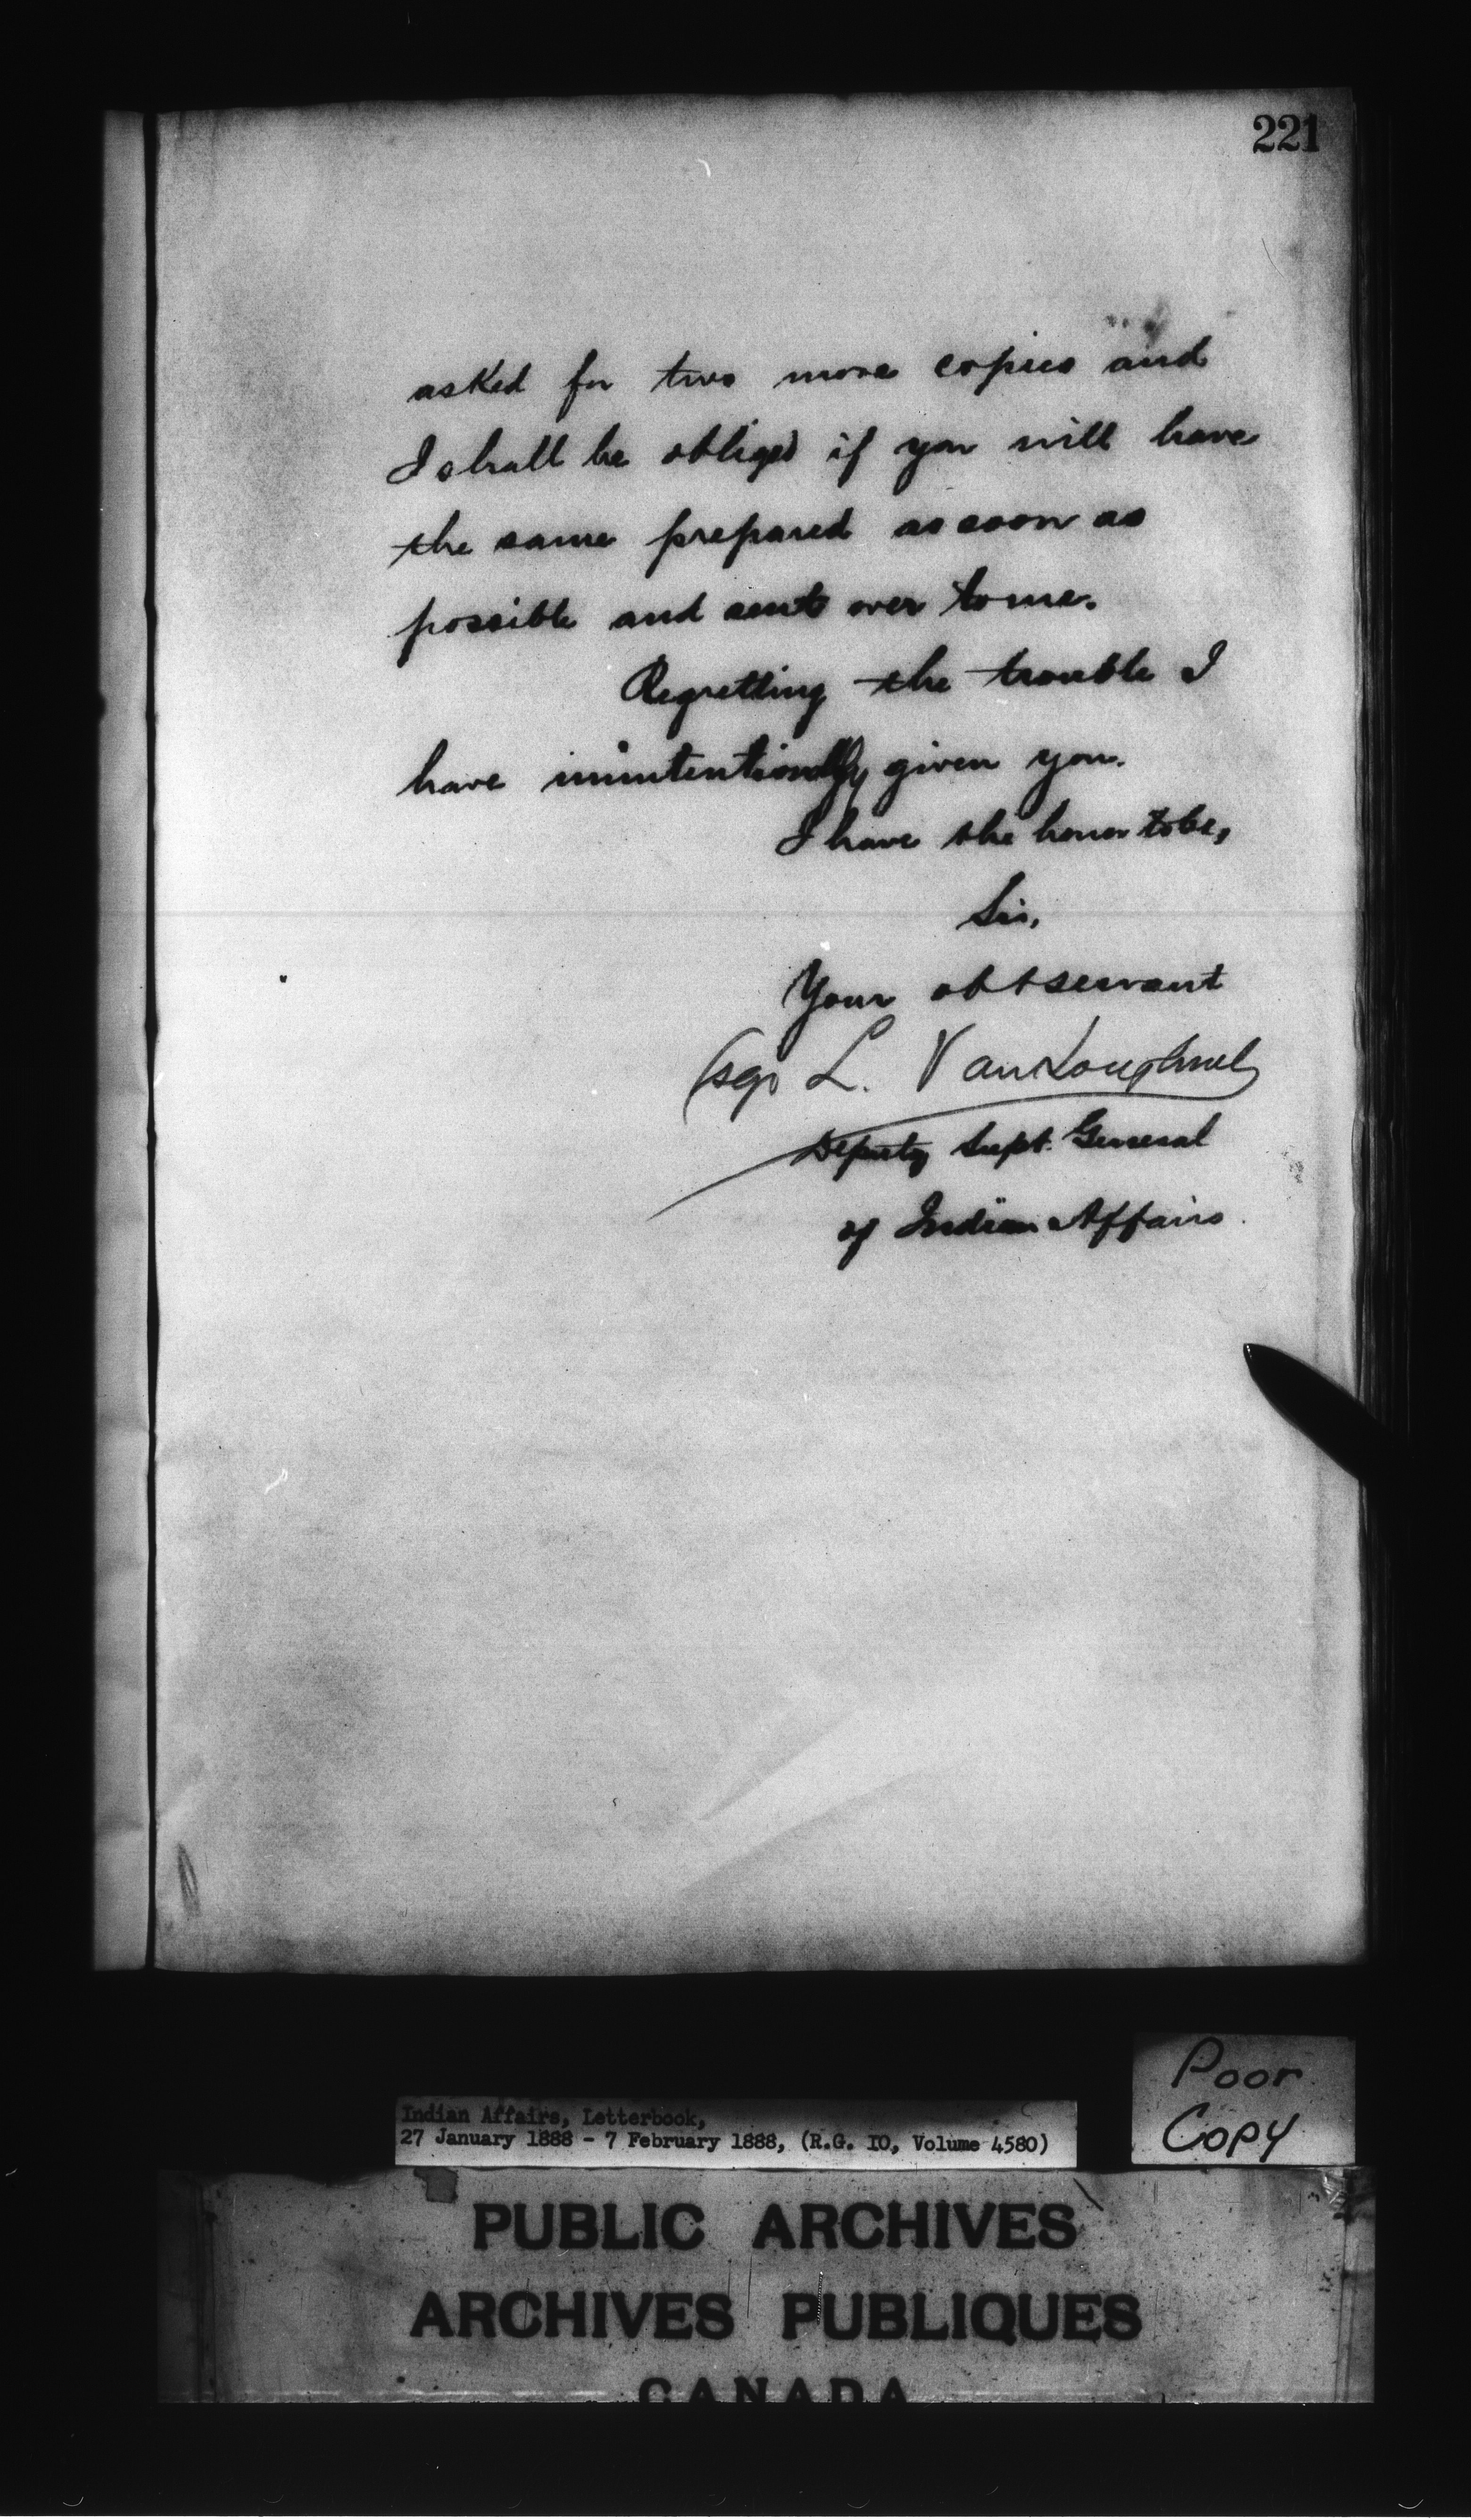 221
asked for two more copies and
I shall be obliged if you will have
the same prepared as soon as
possible and sent over to me.
Regretting the trouble I
have unintentionally given you.
I have the honor to be,
Sir,
Your obt servant
(sgd L. Vankoughnet
Deputy Supt. General
of Indian Affairs.
Poor
Copy
Indian Affairs, Letterbook,
27 January 1888 - 7 February 1888, (R.G. IO, Volume 4580)
PUBLIC ARCHIVES
ARCHIVES PUBLIQUES
CANADA